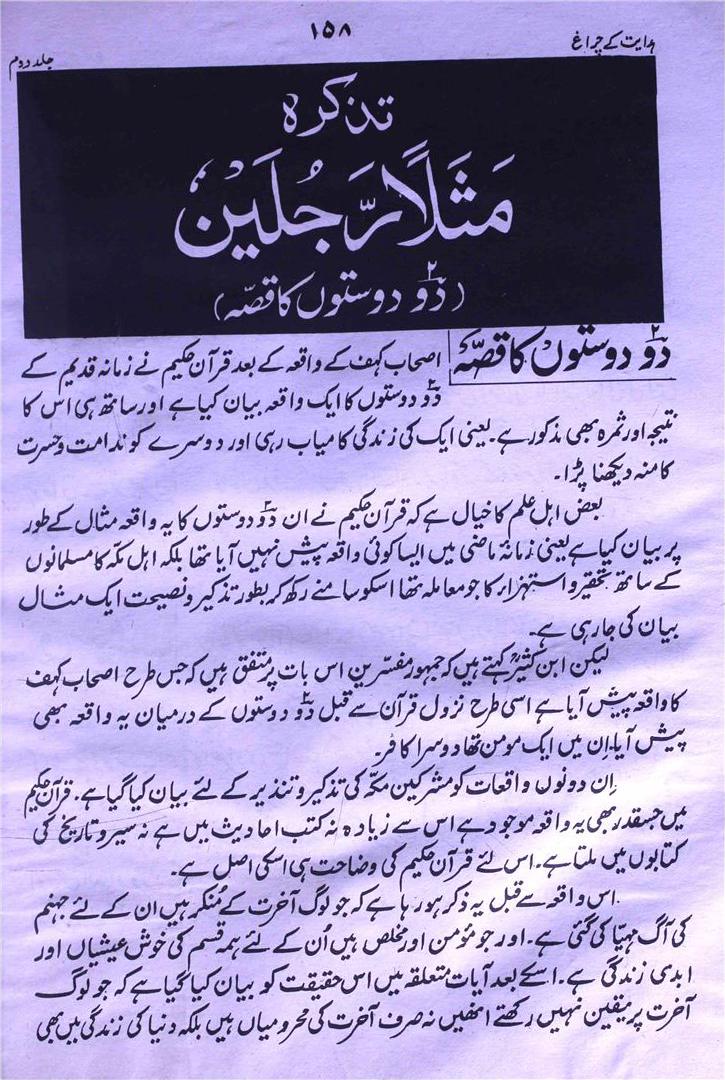 ہدایت کے چراغ
۱۵۸
جلد دوم
تذکرہ
مَثَلًا رَّجُلَیْنِ
(دو۲ دوستوں کا قصّہ)
دو۲ دوستوں کا قصّہ
اصحاب کہف کے واقعہ کے بعد قرآن حکیم نے زمانہ قدیم کے
دو۲ دوستوں کا ایک واقعہ بیان کیا ہے اور ساتھ ہی اس کا
نتیجہ اور ثمرہ بھی مذکور ہے۔ یعنی ایک کی زندگی کامیاب رہی اور دوسرے کو ندامت وحسرت
کا منہ دیکھنا پڑا۔
بعض اہل علم کا خیال ہے کہ قرآن حکیم نے ان دو۲ دوستوں کا یہ واقعہ مثال کے طور
پر بیان کیا ہے یعنی زمانۂ ماضی میں ایسا کوئی واقعہ پیش نہیں آیا تھا بلکہ اہل مکّہ کا مسلمانوں
کے ساتھ تحقیر و استہزار کا جو معاملہ تھا اسکو سامنے رکھ کر بطور تذکیر و نصیحت ایک مثال
بیان کی جارہی ہے۔
لیکن ابن کثیرؒ کہتے ہیں کہ جمہور مفسّرین اس بات پر متفق ہیں کہ جس طرح اصحاب کہف
کا واقعہ پیش آیا ہے اسی طرح نزول قرآن سے قبل دو۲ دوستوں کے درمیان یہ واقعہ بھی
پیش آیا۔ اِن میں ایک مومن تھا دوسرا کافر۔
اِن دونوں واقعات کو مشرکین مکّہ کی تذکیر و تنذیر کے لئے بیان کیا گیا ہے۔ قرآن حکیم
میں جسقدر بھی یہ واقعہ موجود ہے اس سے زیادہ نہ کتب احادیث میں ہے نہ سیر و تاریخ کی
کتابوں میں ملتا ہے۔ اس لئے قرآن حکیم کی وضاحت ہی اسکی اصل ہے۔
اس واقعہ سے قبل یہ ذکر ہورہا ہے کہ جو لوگ آخرت کے مُنکر ہیں ان کے لئے جہنم
کی آگ مہیّا کی گئی ہے۔ اور جو مؤمن اور مخلص ہیں اُن کے لئے ہمہ قسم کی خوش عیشیاں اور
ابدی زندگی ہے۔ اسکے بعد آیات متعلقہ میں اس حقیقت کو بیان کیا گیا ہے کہ جو لوگ
آخرت پر یقین نہیں رکھتے انھیں نہ صرف آخرت کی محرومیاں ہیں بلکہ دنیا کی زندگی میں بھی